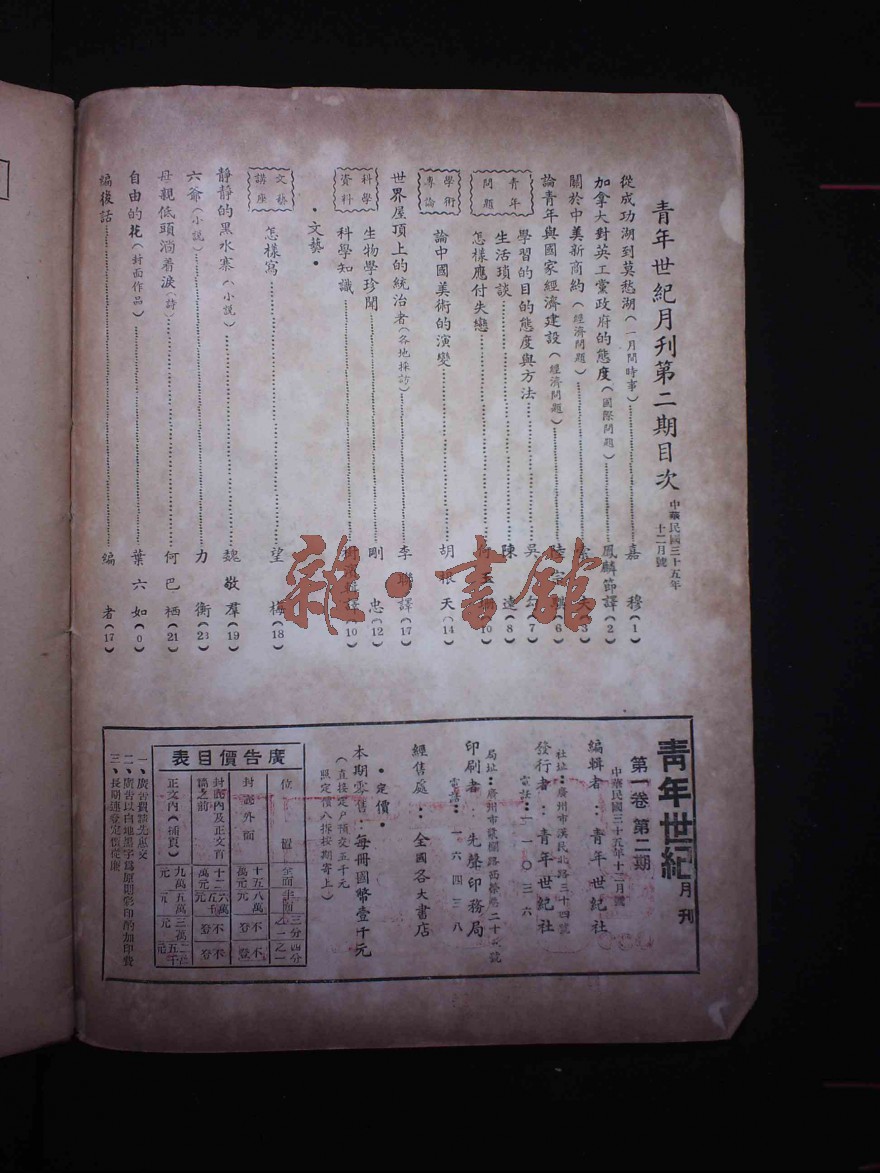 青年世紀月刊第二期目次
中華民國三十五年
十二月號
從成功湖到莫愁湖（一月間時事）嘉穆（1）
加拿大對英工黨政府的態度（國際問題）鳳麟節譯（2）
關於中美新商約（經濟問題）（3）
論青年與國家經濟建設（經濟問題）（6）
青年問題
學習的目的態度與方法 吳（7）
生活瑣談 陳遠（8）
怎樣應付失戀（10）
學術專論
論中國美術的演變 胡根天（14）
世界屋頂上的統治者（各地採訪）李聯譯（17）
科學資料
生物學珍聞 剛忠（12）
科學知識（10）
・文藝・
文藝講座
怎樣寫 望梅（18）
靜靜的黑水寨（小說）魏敬羣（19）
六爺（小說）力衡（23）
母親低頭淌着淚（詩）何巴栖（21）
自由的花（封面作品）葉六如（0）
編後話 編者（17）
雜・書館
青年世紀月刊
第一卷第二期
中華民國三十五年十二月號
編輯者：青年世紀社
發行者：青年世紀社
社址：廣州市漢民北路三十四號
電話：一一〇三六
印刷者：先聲印務局
局址：廣州市
電話：一六四三八
經售處：全國各大書店
・定價・
本期零售：每冊國幣壹千元
（直接定戶預交五千元
照定價八拆按期寄上）
廣告價目表
位置 全面 半面 三分之一 四分之一
封底外面 十五萬元 八萬元 不登 不登
封面內及正文首篇之前 十二萬元 六萬五千元 不登 不登
正文內（補頁） 九萬元 五萬元 三萬元
一、廣告費請先惠交
二、廣告以白地黑字爲原則彩印酌加印費
三、長期連登定價從廉